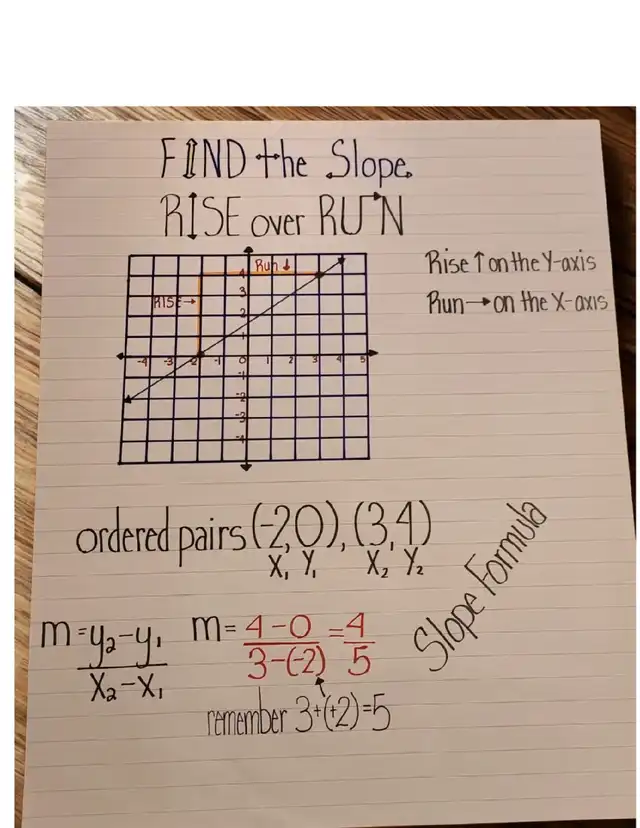 FIND the Slope.
RISE over RUN
Run ↓
RISE→
4
3
2
1
-4 -3 -2 -1 0 1 2 3 4 5
-1
-2
-3
-4
Rise ↑ on the Y-axis
Run → on the X-axis
ordered pairs (-2,0), (3,4)
X₁ Y₁ X₂ Y₂
Slope Formula
m = y₂-y₁ m = 4-0 = 4
X₂-X₁ 3-(-2) 5
remember 3+(+2)=5